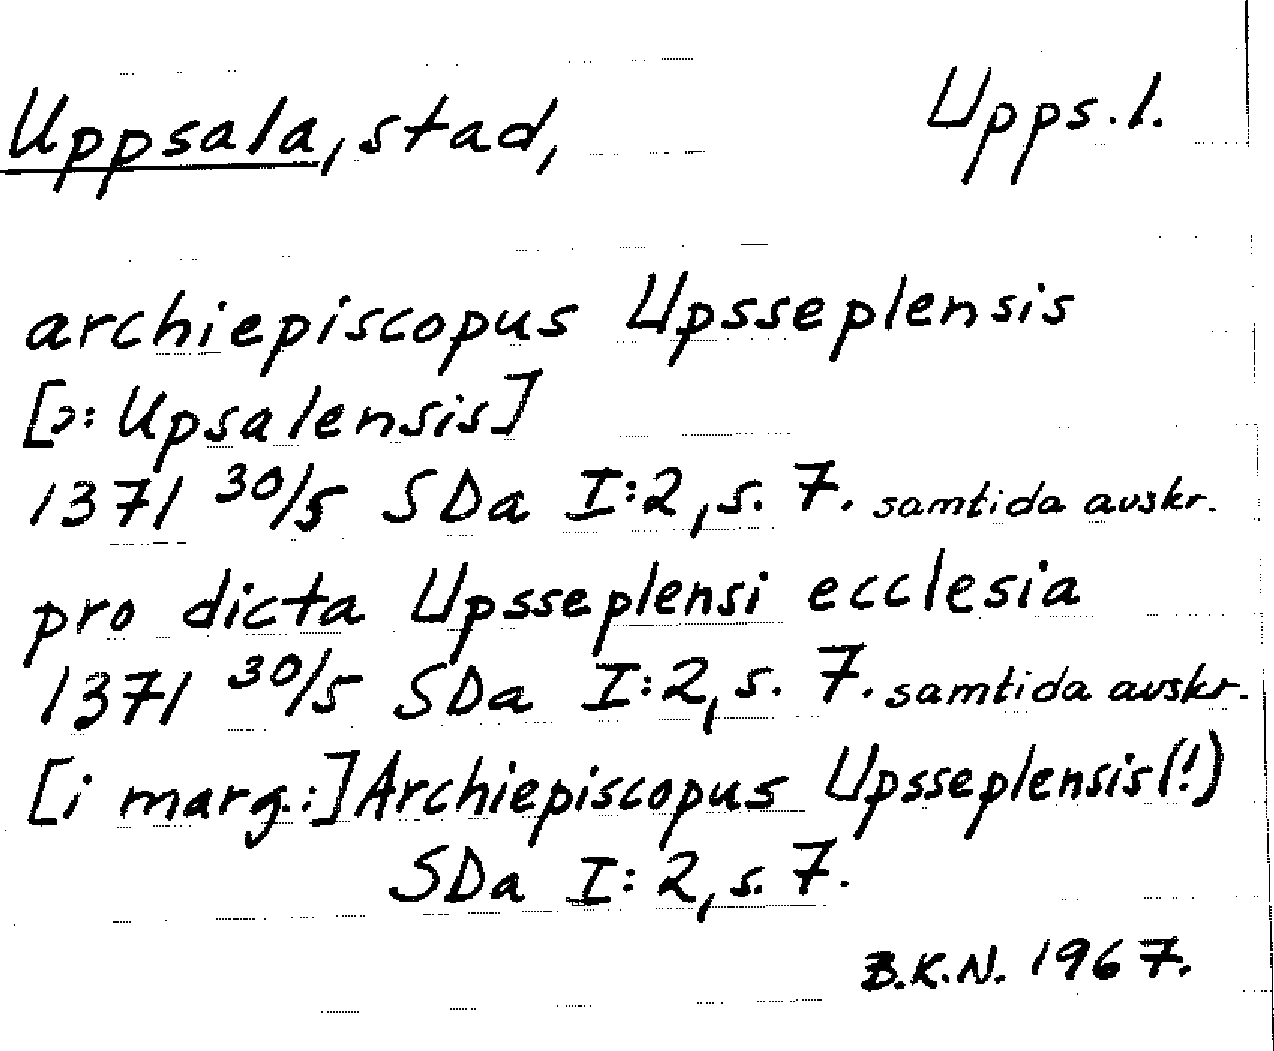 Uppsala, stad, Upps.l.
archiepiscopus Upsseplensis
[ɔ: Upsalensis]
1371 30/5 SDa I:2, s. 7. samtida avskr.
pro dicta Upsseplensi ecclesia
1371 30/5 SDa I:2, s. 7. samtida avskr.
[i marg.:] Archiepiscopus Upsseplensis (!)
SDa I:2, s. 7.
B.K.N. 1967.